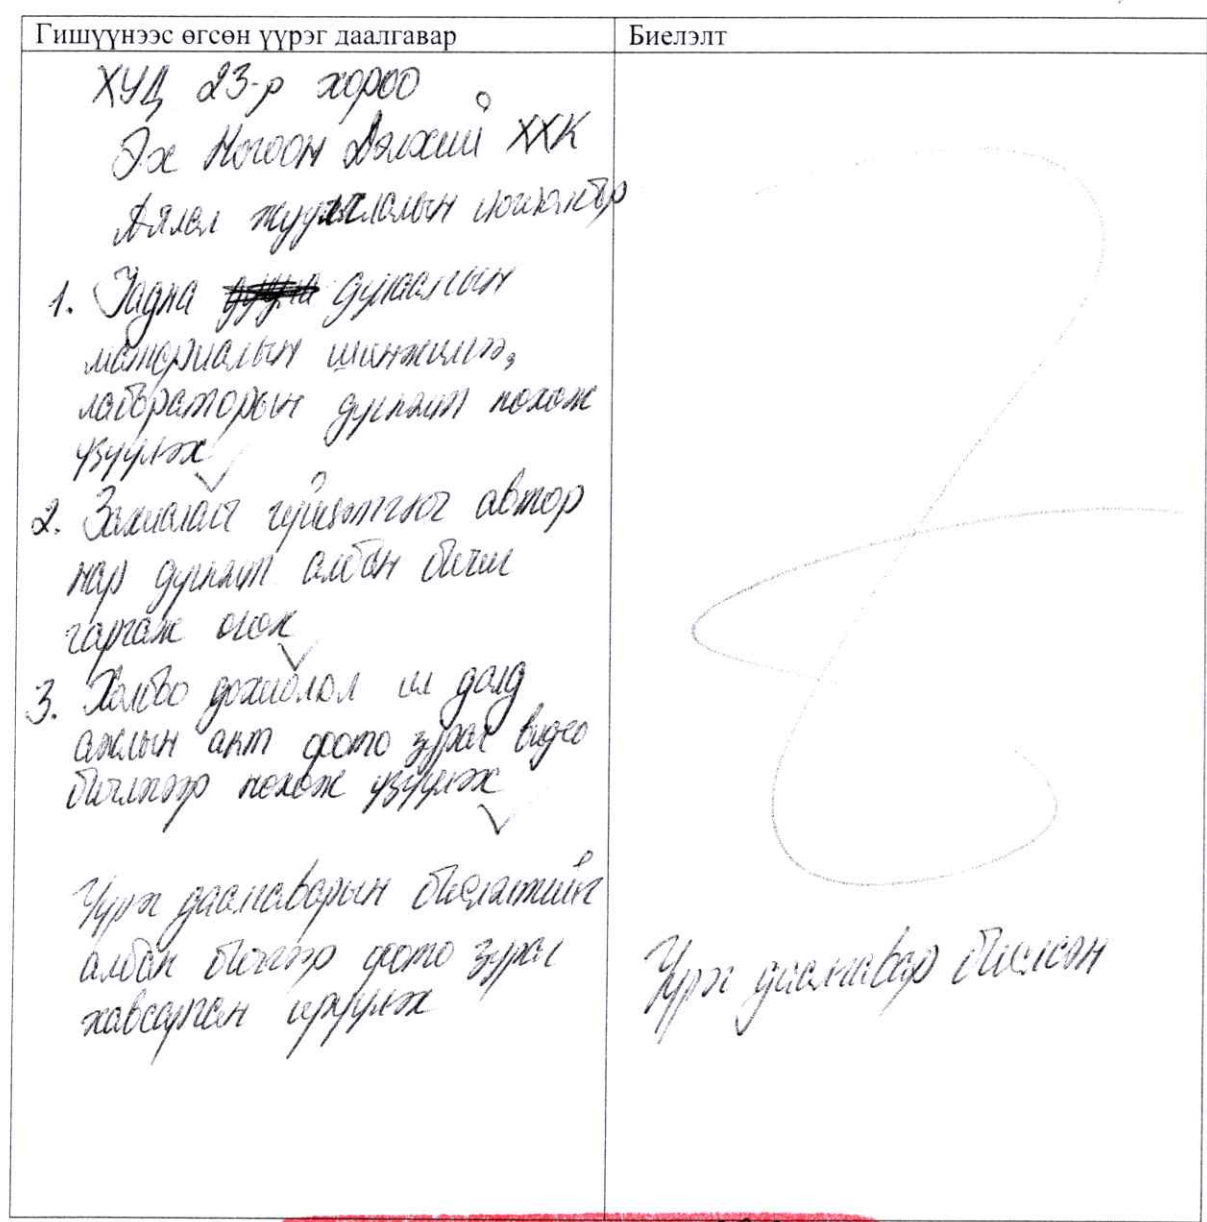 Гишүүнээс өгсөн үүрэг даалгавар
Биелэлт
ХУД 23-р хороо
Эх Ногоон Дэлхий ХХК
Аялал жуулчлалын цогцолбор
1. Гадна дулаалгын
материалын шинжилгээ,
лабораторын дүгнэлт нөхөж
үзүүлэх
2. Захиалагч гүйцэтгэгч автор
нар дүгнэлт албан бичиг
гаргаж өгөх
3. Холбоо дохиолол ил далд
ажлын акт фото зураг видео
бичлэгээр нөхөж үзүүлэх
Үүрэг даалгаварын биелэлтийг
албан бичгээр фото зураг
хавсарган ирүүлэх
Үүрэг даалгавар биелсэн